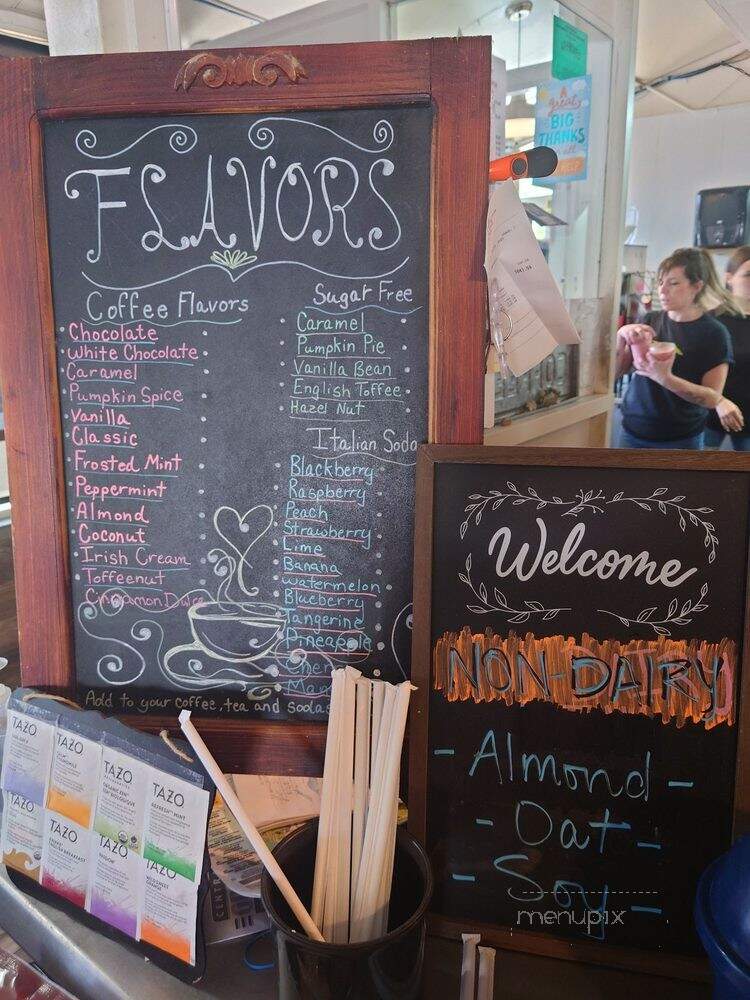 FLAVORS
Coffee Flavors
Chocolate
White Chocolate
Caramel
Pumpkin Spice
Vanilla
Classic
Frosted Mint
Peppermint
Almond
Coconut
Irish Cream
Toffeenut
Cinnamon Dulce
Sugar Free
Caramel
Pumpkin Pie
Vanilla Bean
English Toffee
Hazel Nut
Italian Soda
Blackberry
Raspberry
Peach
Strawberry
Lime
Banana
Watermelon
Blueberry
Tangerine
Pineapple
Add to your coffee, tea and sodas
Welcome
NON-DAIRY
- Almond -
- Oat -
- Soy -
menupix
A
great
BIG
THANKS
TAZO
TAZO
TAZO
TAZO
REFRESH MINT
TAZO
TAZO
TAZO